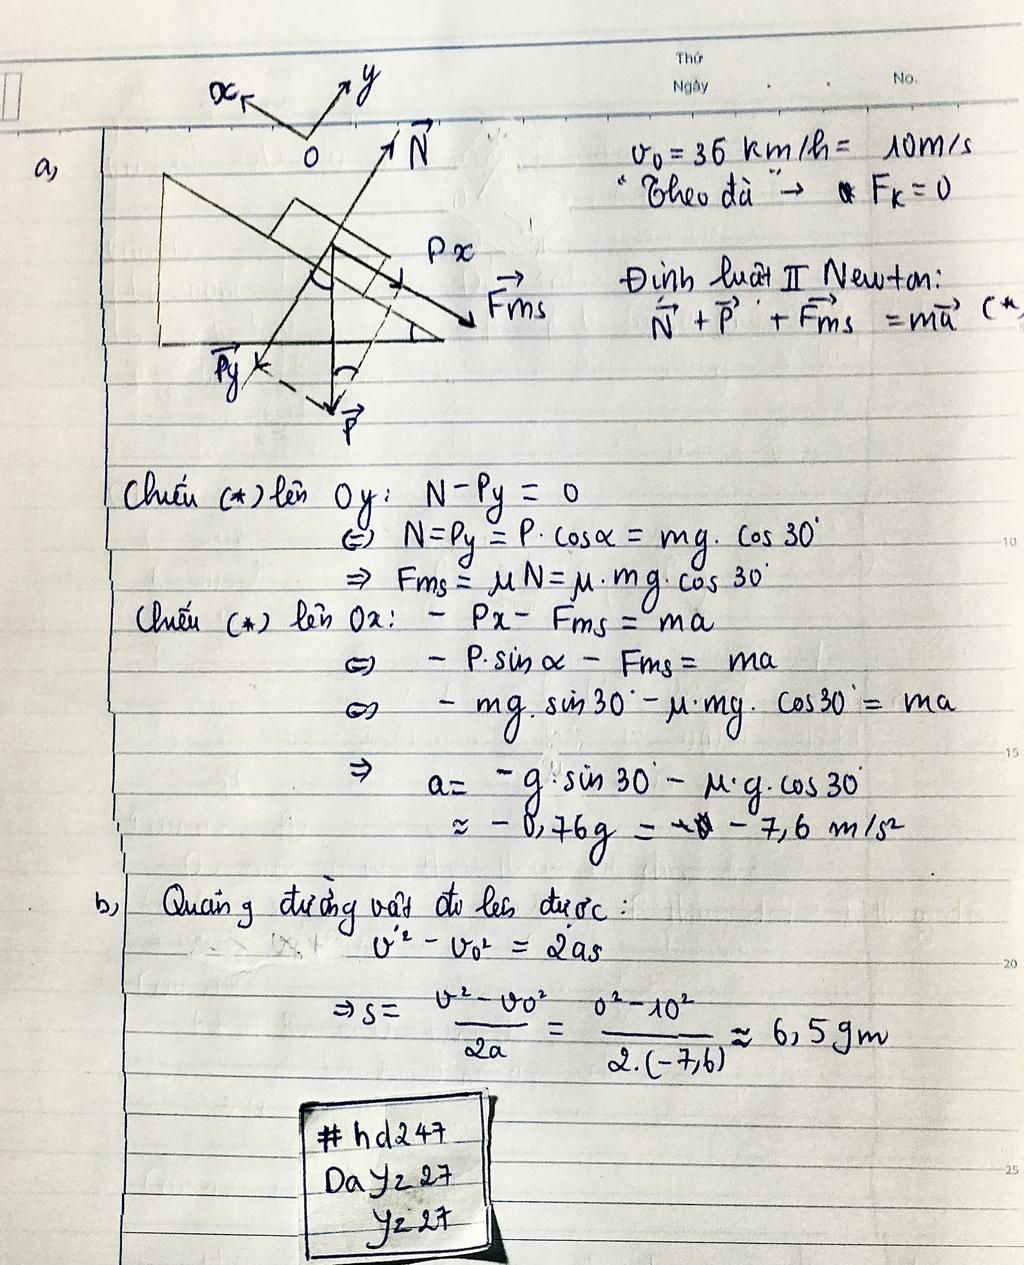 Thứ
Ngày
No.
a,
x
y
O
N
Px
Fms
Py
P
v₀ = 36 km/h = 10m/s
"Theo đà" → Fk = 0
Định luật II Newton:
N + P + Fms = ma (*)
Chiếu (*) lên Oy: N - Py = 0
⇔ N = Py = P. cosα = mg. cos 30°
⇒ Fms = μN = μ.mg.cos 30°
Chiếu (*) lên Ox: - Px - Fms = ma
⇔ - P.sin α - Fms = ma
⇔ - mg. sin 30° - μ.mg. cos 30° = ma
⇒ a = - g.sin 30° - μ.g.cos 30°
≈ - 0,76g = - 7,6 m/s²
b, Quãng đường vật đi lên được:
v² - v₀² = 2as
⇒ s = (v² - v₀²)/2a = (0² - 10²)/2.(-7,6) ≈ 6,59m
10
15
20
25
#hd247
DaYz27
Yz27